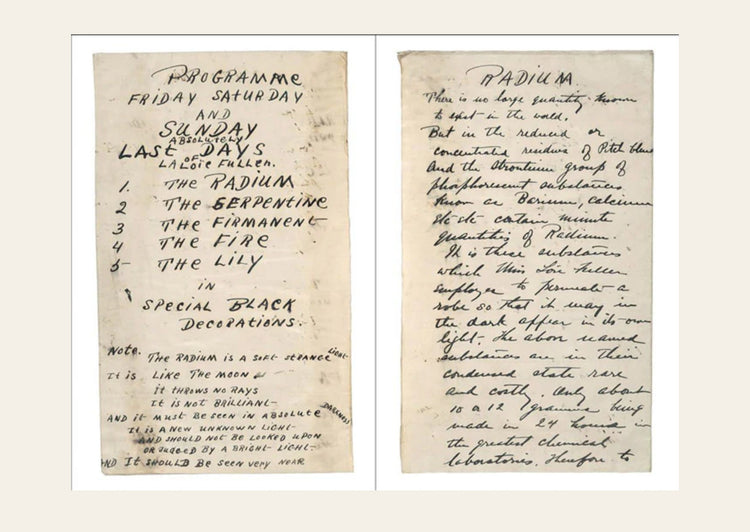 PROGRAMME
FRIDAY SATURDAY
AND
SUNDAY
ABSOLUTELY
LAST DAYS
OF
LA LOIE FULLER.
1. THE RADIUM
2 THE SERPENTINE
3 THE FIRMANENT
4 THE FIRE
5- THE LILY
IN
SPECIAL BLACK
DECORATIONS.
Note. THE RADIUM IS A SOFT STRANGE LIGHT
IT IS LIKE THE MOON
IT THROWS NO RAYS
IT IS NOT BRILLIANT-
AND IT MUST BE SEEN IN ABSOLUTE DARKNESS
IT IS A NEW UNKNOWN LIGHT-
AND SHOULD NOT BE LOOKED UPON
OR JUDGED BY A BRIGHT LIGHT-
AND IT SHOULD BE SEEN VERY NEAR
RADIUM.
There is no large quantity known
to exist in the world.
But in the reduced or
concentrated residues of Pitch blend
And the Strontium group of
phosphorescent substances
known as Barium, calcium
etc etc certain minute
quantities of Radium.
It is these substances
which Miss Loie Fuller
employes to permeate a
robe so that it may in
the dark appear in its own
light- The above named
substances are in their
condensed state rare
and costly. Only about
10 a 12 grammes being
made in 24 hours in
the greatest chemical
laboratories. Therefore to